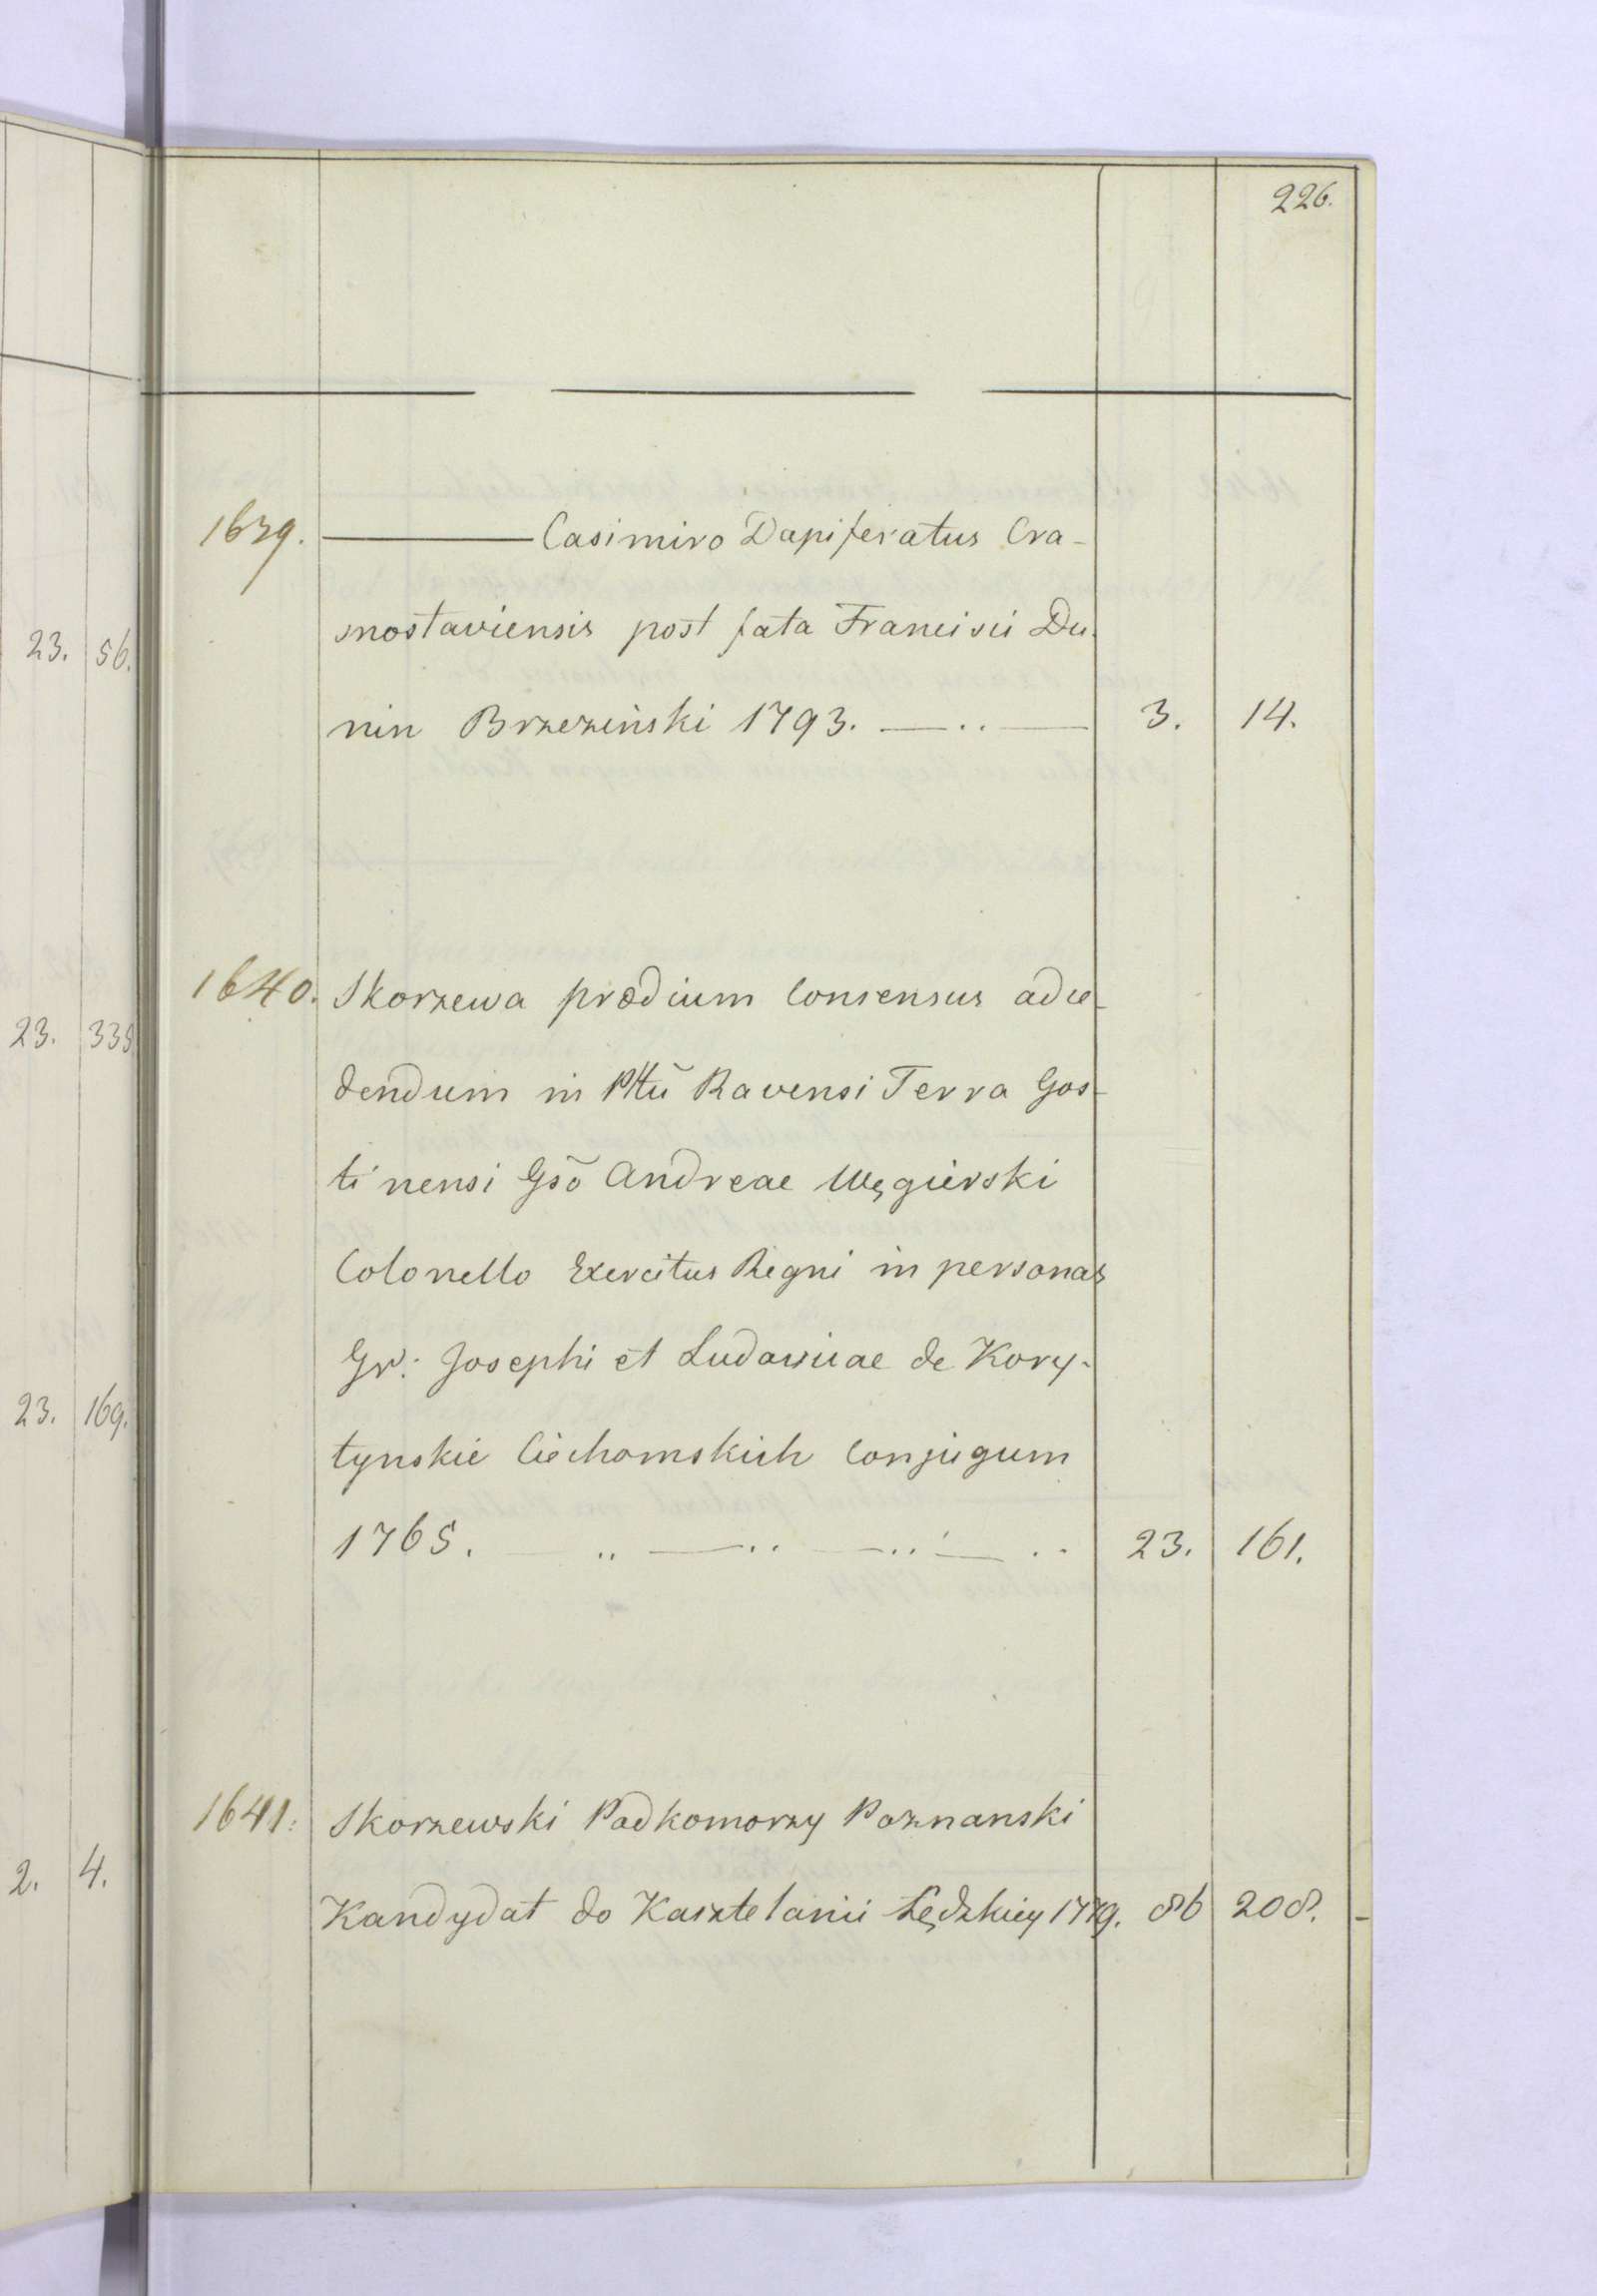 226.
1639. Casimiro Dapiferatus Cra-
snostaviensis post fata Francisci Du-
nin Brzeziński 1793. 3. 14.
1640. Skorzewa prædium consensus adce-
dendum in Pttū Ravensi Terra Gos-
tinensi Gsō Andreae Węgierski
Colonello Exercitus Regni in personas
Gr: Josephi et Ludovicae de Kory-
tynskie Ciechomskich conjugum
1765. 23. 161.
1641. Skorzewski Podkomorzy Poznanski
Kandydat do Kasztelanii Lędzkiey 1779. 86 208.
23. 56.
23. 335
23. 169.
2. 4.